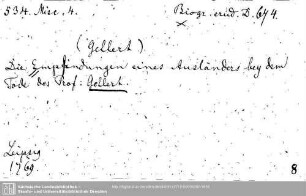 534. Misc. 4. Biogr. erud. D. 674.
(Gellert)
Die Empfindungen eines Ausländers bey dem
Tode des Prof: Gellert.
Leipzig
1769
8
Sächsische Landesbibliothek -
Staats- und Universitätsbibliothek Dresden